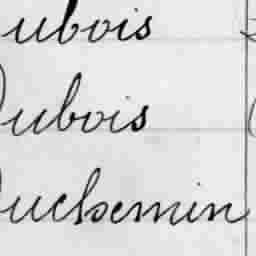 Dubois
Dubois
Duchemin